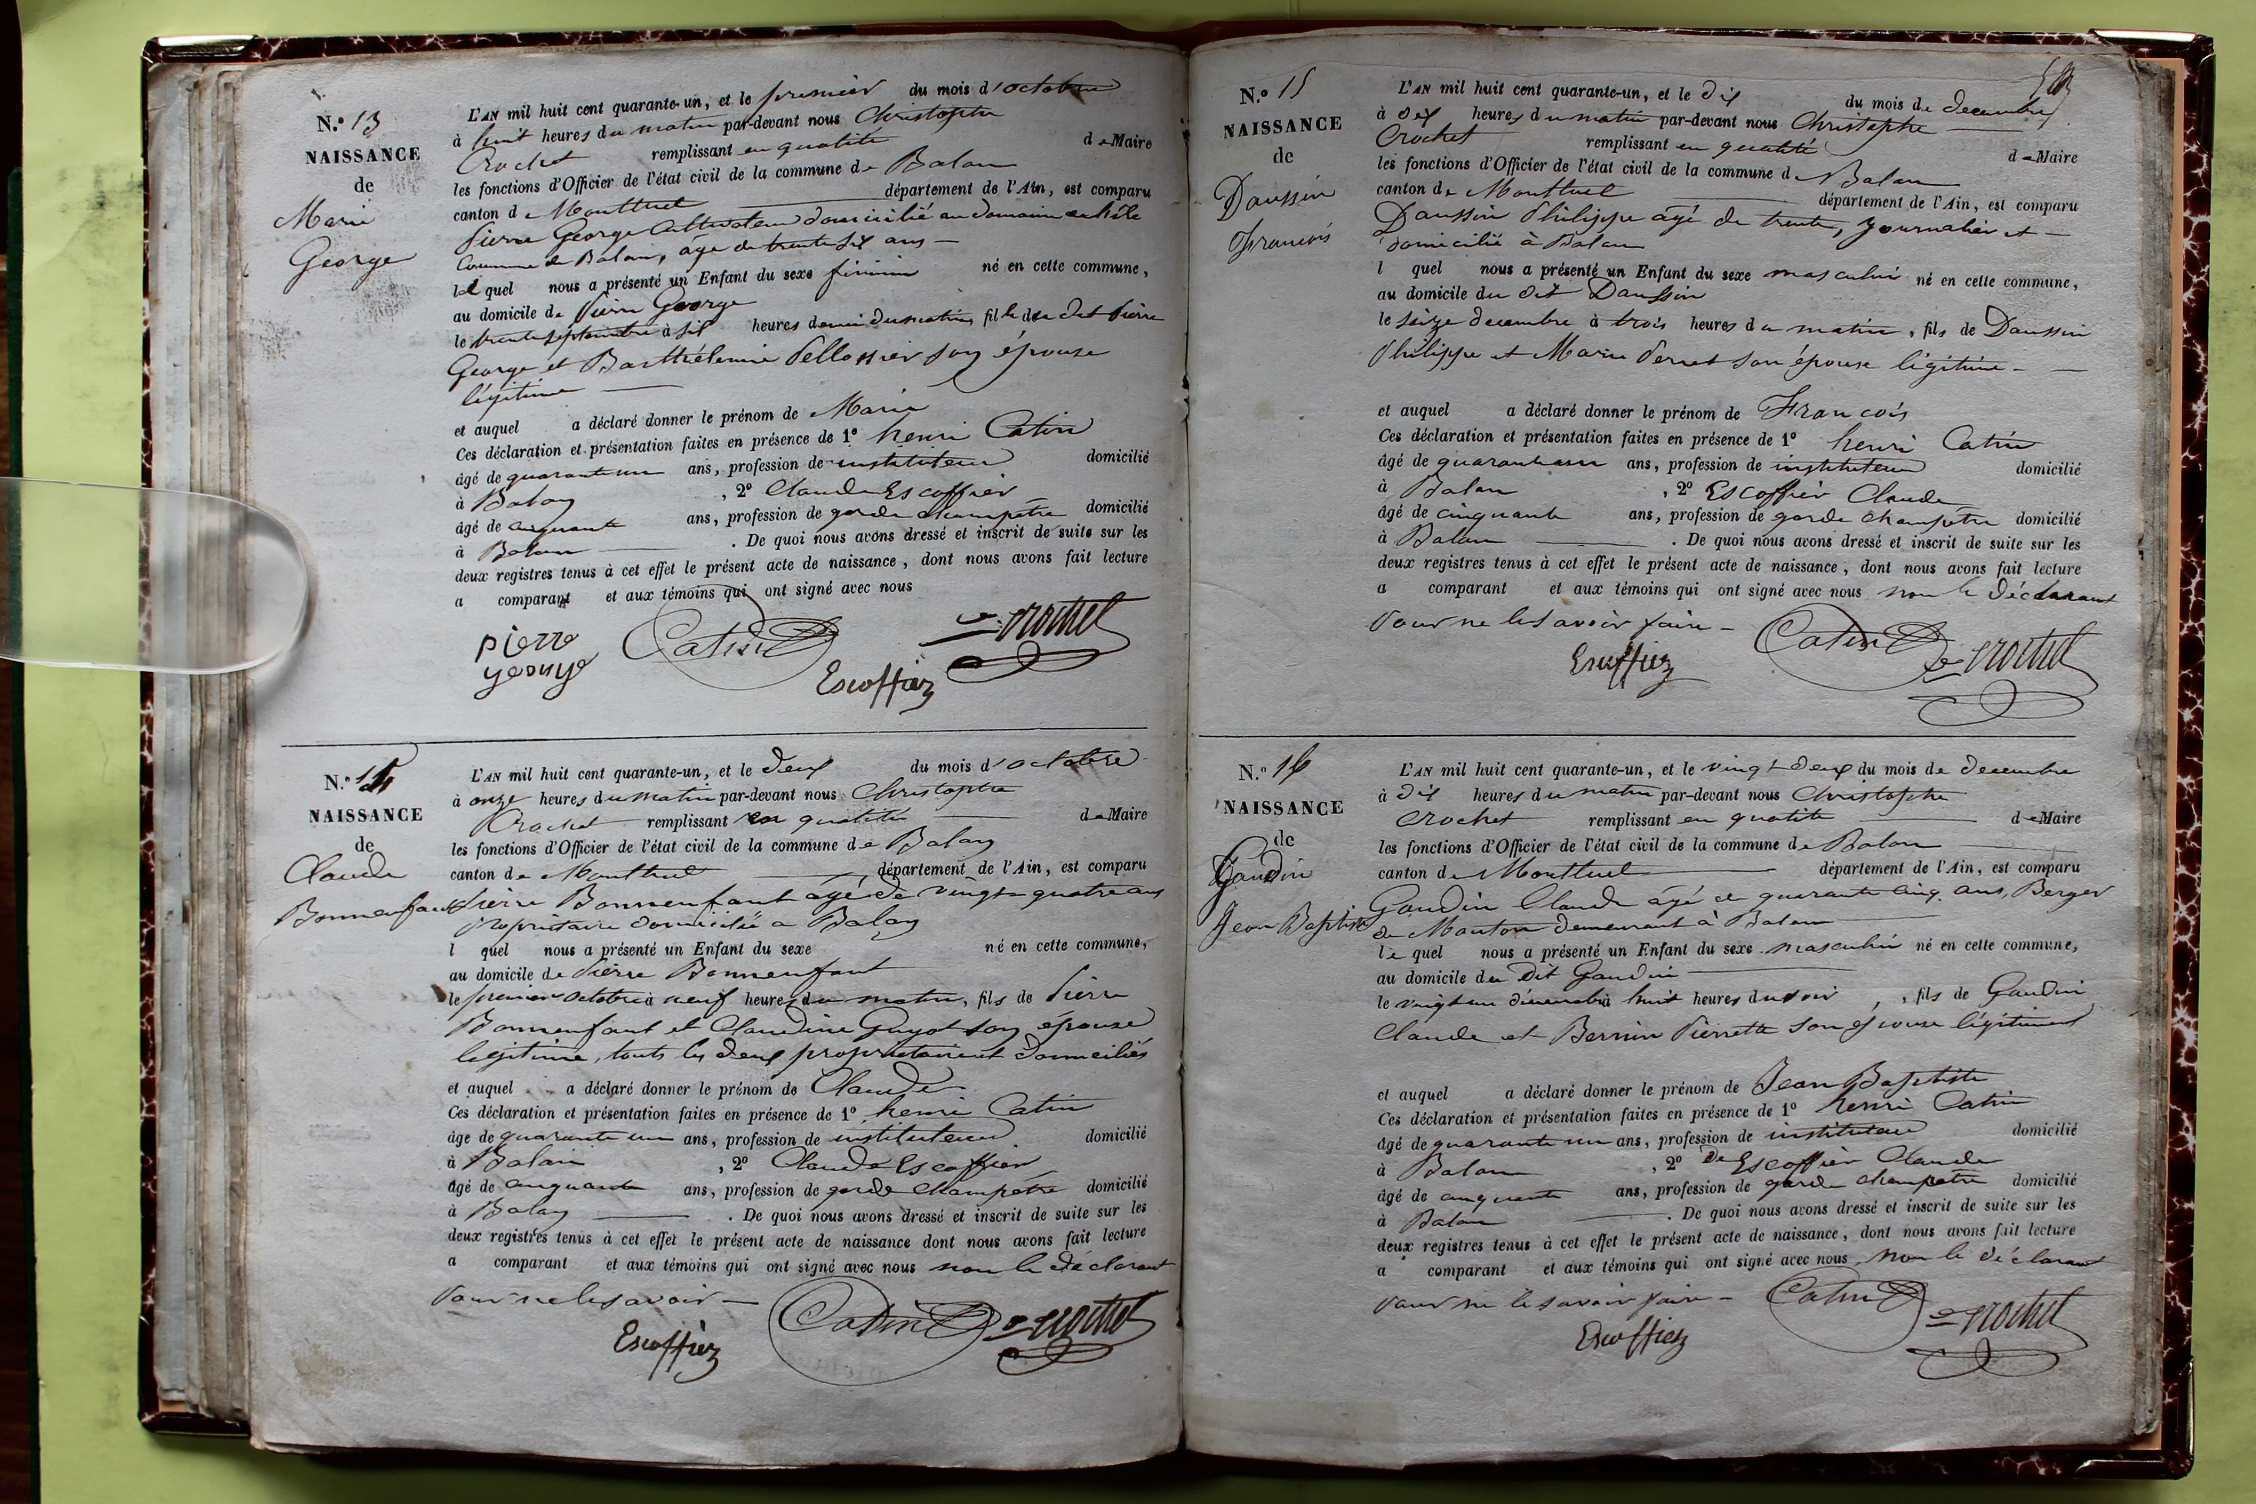 N.° 13
NAISSANCE
de
Marie
George
L'AN mil huit cent quarante-un, et le premier du mois d'octobre
à huit heures du matin par-devant nous Christophe
Crochet remplissant en qualité de Maire
les fonctions d'Officier de l'état civil de la commune de Balan
canton de Montluel département de l'Ain, est comparu
Pierre George Cultivateur domicilié au domaine
Commune de Balan, âgé de trente six ans
lequel nous a présenté un Enfant du sexe féminin né en cette commune,
au domicile de Pierre George
le trente septembre à six heures du matin, fille du dit Pierre
George et Barthélemie Pellossier son épouse
légitime
et auquel a déclaré donner le prénom de Marie
Ces déclaration et présentation faites en présence de 1° henri Catin
âgé de quarante un ans, profession de instituteur domicilié
à Balan, 2° Claude Escoffier
âgé de cinquante ans, profession de garde champêtre domicilié
à Balan. De quoi nous avons dressé et inscrit de suite sur les
deux registres tenus à cet effet le présent acte de naissance, dont nous avons fait lecture
a comparant et aux témoins qui ont signé avec nous
pierre
george
Catin
Escoffiez
Crochet
N.° 14
NAISSANCE
de
Claude
Bonnenfant
L'AN mil huit cent quarante-un, et le deux du mois d'octobre
à onze heures du matin par-devant nous Christophe
Crochet remplissant en qualité de Maire
les fonctions d'Officier de l'état civil de la commune de Balan
canton de Montluel département de l'Ain, est comparu
Pierre Bonnenfant âgé de vingt quatre ans
propriétaire domicilié a Balan
l quel nous a présenté un Enfant du sexe né en cette commune,
au domicile de Pierre Bonnenfant
le premier octobre à neuf heures du matin, fils de Pierre
Bonnenfant et Claudine Guyot son épouse
légitime, touts les deux propriétairent domiciliés
et auquel a déclaré donner le prénom de Claude
Ces déclaration et présentation faites en présence de 1° henri Catin
âgé de quarante un ans, profession de instituteur domicilié
à Balan, 2° Claude Escoffier
âgé de cinquante ans, profession de garde champêtre domicilié
à Balan. De quoi nous avons dressé et inscrit de suite sur les
deux registres tenus à cet effet le présent acte de naissance dont nous avons fait lecture
a comparant et aux témoins qui ont signé avec nous non le déclarant
pour ne le savoir
Escoffiez
Catin
Crochet
N.° 15
NAISSANCE
de
Daussin
François
L'AN mil huit cent quarante-un, et le dix du mois de decembre
à dix heures du matin par-devant nous Christophe
Crochet remplissant en qualité de Maire
les fonctions d'Officier de l'état civil de la commune d Balan
canton de Montluel département de l'Ain, est comparu
Daussin Philippe âgé de trente, journalier et
domicilié à Balan
l quel nous a présenté un Enfant du sexe masculin né en cette commune,
au domicile du dit Daussin
le seize decembre à trois heures du matin, fils de Daussin
Philippe et Marie Perret son épouse légitime
et auquel a déclaré donner le prénom de François
Ces déclaration et présentation faites en présence de 1° henri Catin
âgé de quarante un ans, profession de instituteur domicilié
à Balan, 2° Escoffier Claude
âgé de cinquante ans, profession de garde champêtre domicilié
à Balan. De quoi nous avons dressé et inscrit de suite sur les
deux registres tenus à cet effet le présent acte de naissance, dont nous avons fait lecture
a comparant et aux témoins qui ont signé avec nous non le déclarant
pour ne le savoir faire
Escoffiez
Catin
Crochet
N.° 16
NAISSANCE
de
Gaudin
Jean Baptiste
L'AN mil huit cent quarante-un, et le vingt deux du mois de decembre
à dix heures du matin par-devant nous Christophe
Crochet remplissant en qualité de Maire
les fonctions d'Officier de l'état civil de la commune de Balan
canton de Montluel département de l'Ain, est comparu
Gaudin Claude âgé de quarante cinq ans, Berger
de Mouton demeurant à Balan
le quel nous a présenté un Enfant du sexe masculin né en cette commune,
au domicile du dit Gaudin
le vingt un décembre à huit heures du soir, fils de Gaudin
Claude et Bernin Pierrette son épouse légitime
et auquel a déclaré donner le prénom de Jean Baptiste
Ces déclaration et présentation faites en présence de 1° henri Catin
âgé de quarante un ans, profession de instituteur domicilié
à Balan, 2° Escoffier Claude
âgé de cinquante ans, profession de garde champêtre domicilié
à Balan. De quoi nous avons dressé et inscrit de suite sur les
deux registres tenus à cet effet le présent acte de naissance, dont nous avons fait lecture
a comparant et aux témoins qui ont signé avec nous non le déclarant
pour ne le savoir faire
Escoffiez
Catin
Crochet